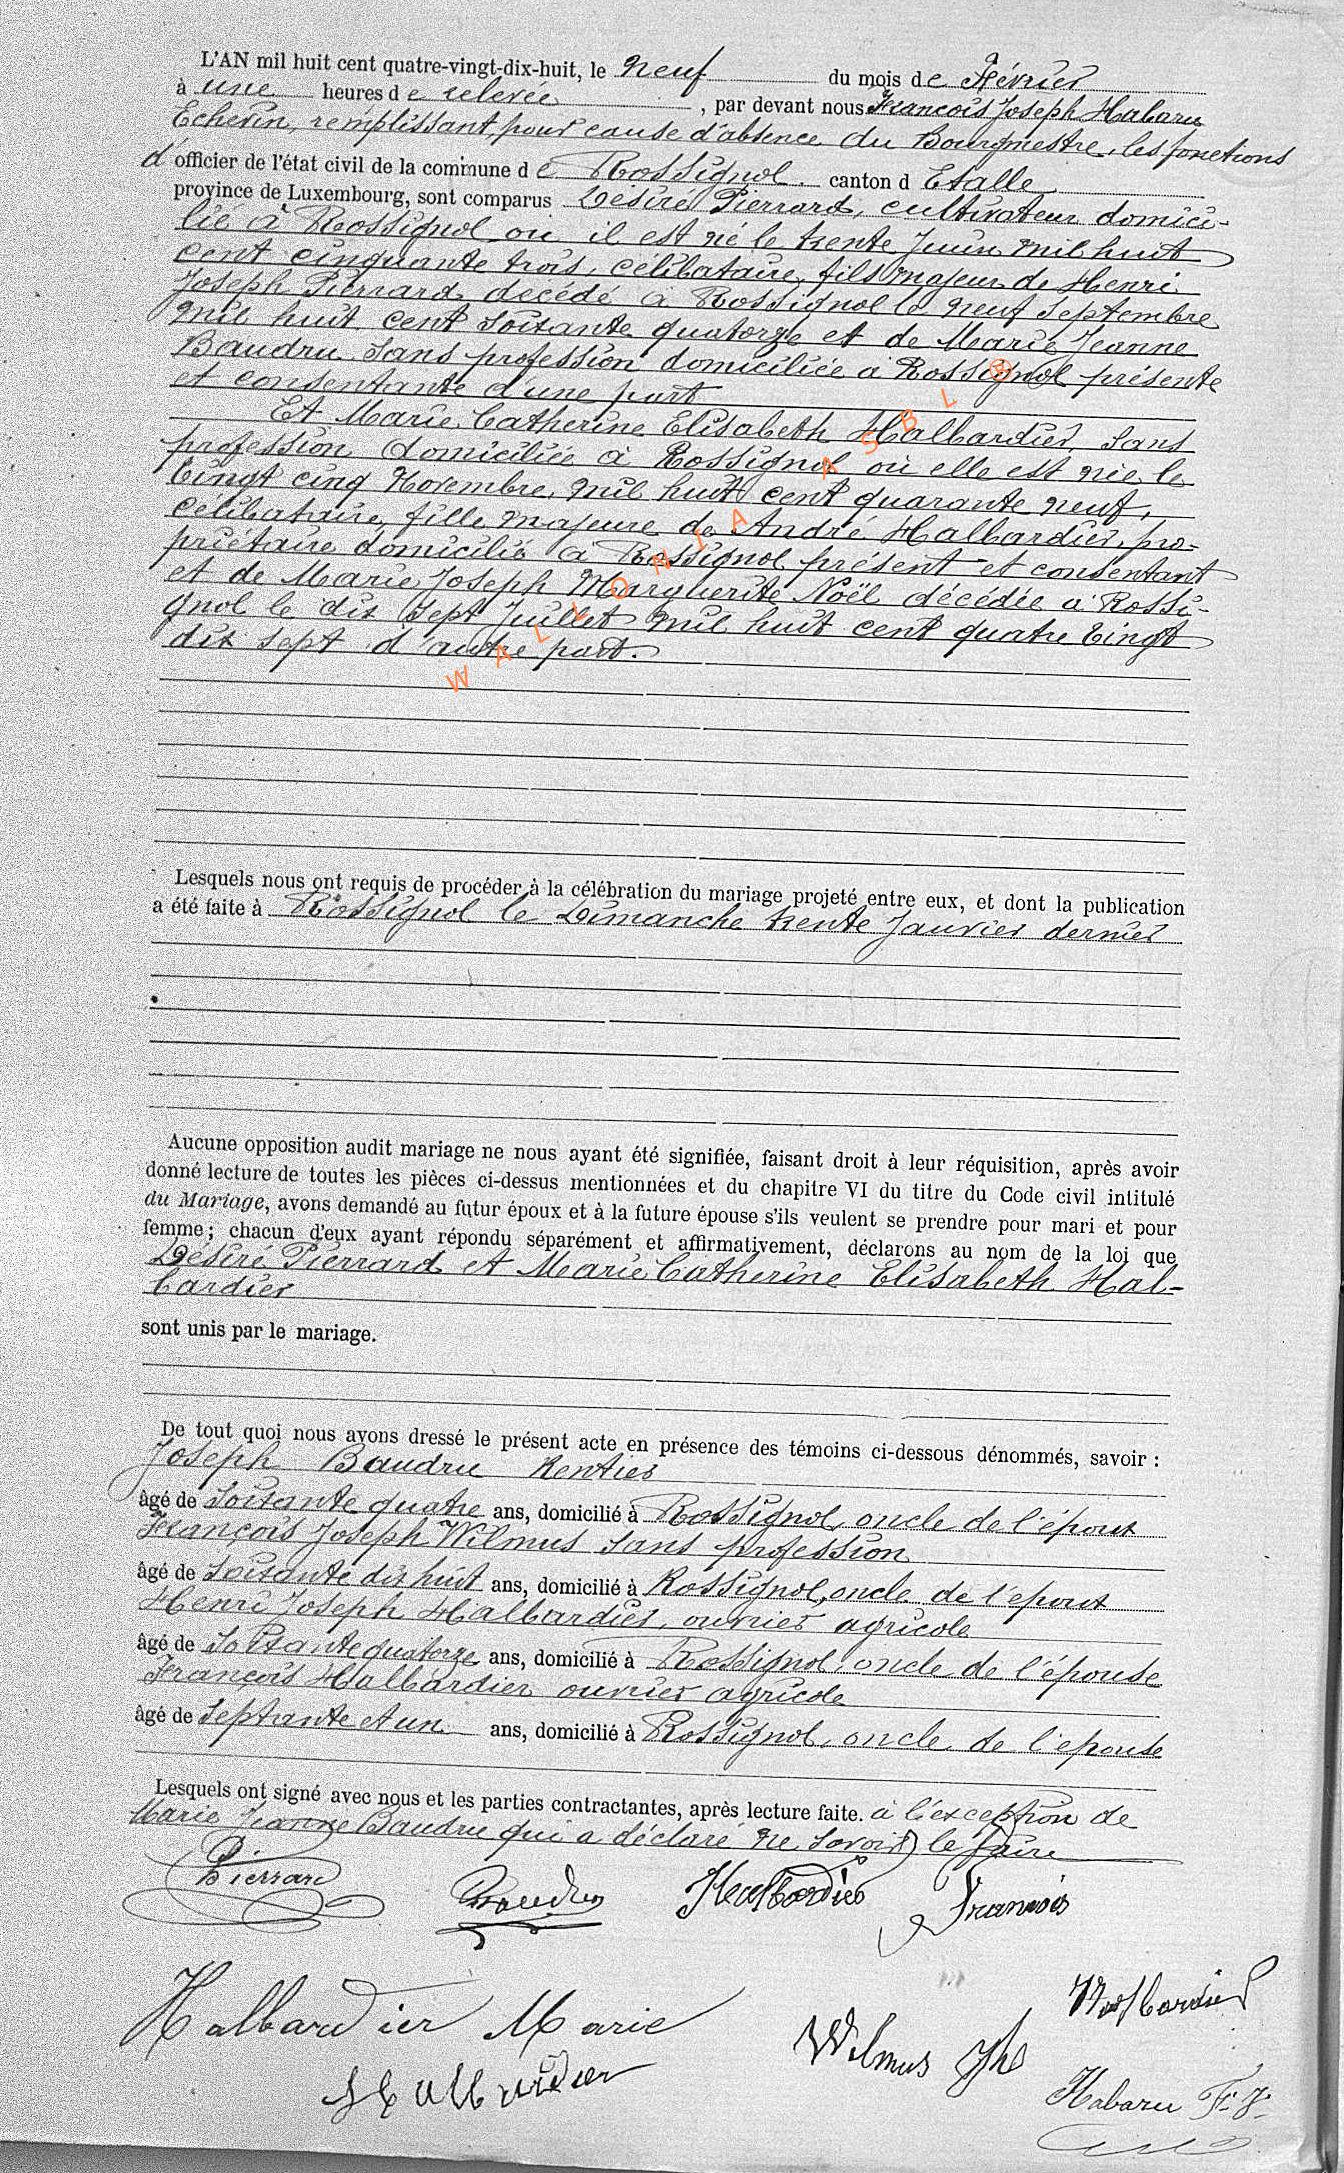 L'AN mil huit cent quatre-vingt-dix-huit, le neuf du mois de Février
à une heures de relevée, par devant nous François Joseph Habaru
Echevin, remplissant pour cause d'absence du Bourgmestre, les fonctions
d'officier de l'état civil de la commune de Rossignol. canton d Etalle
province de Luxembourg, sont comparus Désiré Pierrard, cultivateur domici-
lié à Rossignol où il est né le trente Juin mil huit
cent cinquante trois, célibataire, fils majeur de Henri
Joseph Pierrard décédé à Rossignol le neuf Septembre
mil huit cent soixante quatorze et de Marie Jeanne
Baudru sans profession domiciliée à Rossignol présente
et consentante d'une part
Et Marie Catherine Elisabeth Halbardier, sans
profession domiciliée à Rossignol où elle est née le
vingt cinq Novembre mil huit cent quarante neuf,
célibataire, fille majeure de André Halbardier, pro-
priétaire domicilié à Rossignol présent et consentant
et de Marie Joseph Marguerite Noël décédée à Rossi-
gnol le dix sept Juillet mil huit cent quatre vingt
dix sept d'autre part.
WALLONIA ASBL ®
Lesquels nous ont requis de procéder à la célébration du mariage projeté entre eux, et dont la publication
a été faite à Rossignol le Dimanche trente Janvier dernier
Aucune opposition audit mariage ne nous ayant été signifiée, faisant droit à leur réquisition, après avoir
donné lecture de toutes les pièces ci-dessus mentionnées et du chapitre VI du titre du Code civil intitulé
du Mariage, avons demandé au futur époux et à la future épouse s'ils veulent se prendre pour mari et pour
femme; chacun d'eux ayant répondu séparément et affirmativement, déclarons au nom de la loi que
Désiré Pierrard et Marie Catherine Elisabeth Hal-
bardier
sont unis par le mariage.
De tout quoi nous avons dressé le présent acte en présence des témoins ci-dessous dénommés, savoir :
Joseph Baudru Rentier
âgé de soixante quatre ans, domicilié à Rossignol, oncle de l'époux
François Joseph Wilmus sans profession
âgé de soixante dix huit ans, domicilié à Rossignol, oncle de l'époux
Henri Joseph Halbardier, ouvrier agricole
âgé de soixante quatorze ans, domicilié à Rossignol oncle de l'épouse
François Halbardier ouvrier agricole
âgé de septante et un ans, domicilié à Rossignol, oncle de l'épouse
Lesquels ont signé avec nous et les parties contractantes, après lecture faite. à l'exception de
Marie Jeanne Baudru qui a déclaré ne savoir le faire
D. Pierrard Baudru Halbardier François
Halbardier Marie Halbardier
Wilmus Jh
Halbardier
Habaru F. J.